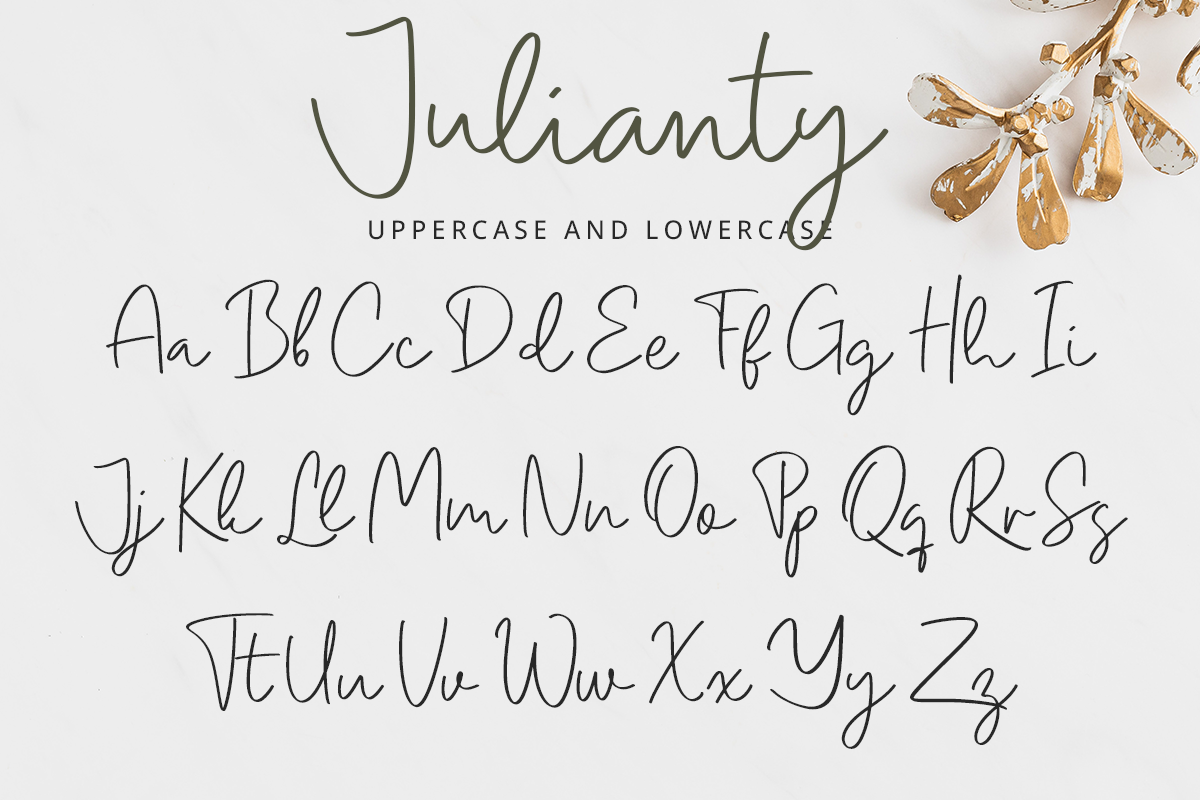 Julianty
UPPERCASE AND LOWERCASE
Aa Bb Cc Dd Ee Ff Gg Hh Ii
Jj Kk Ll Mm Nn Oo Pp Qq Rr Ss
Tt Uu Vv Ww Xx Yy Zz